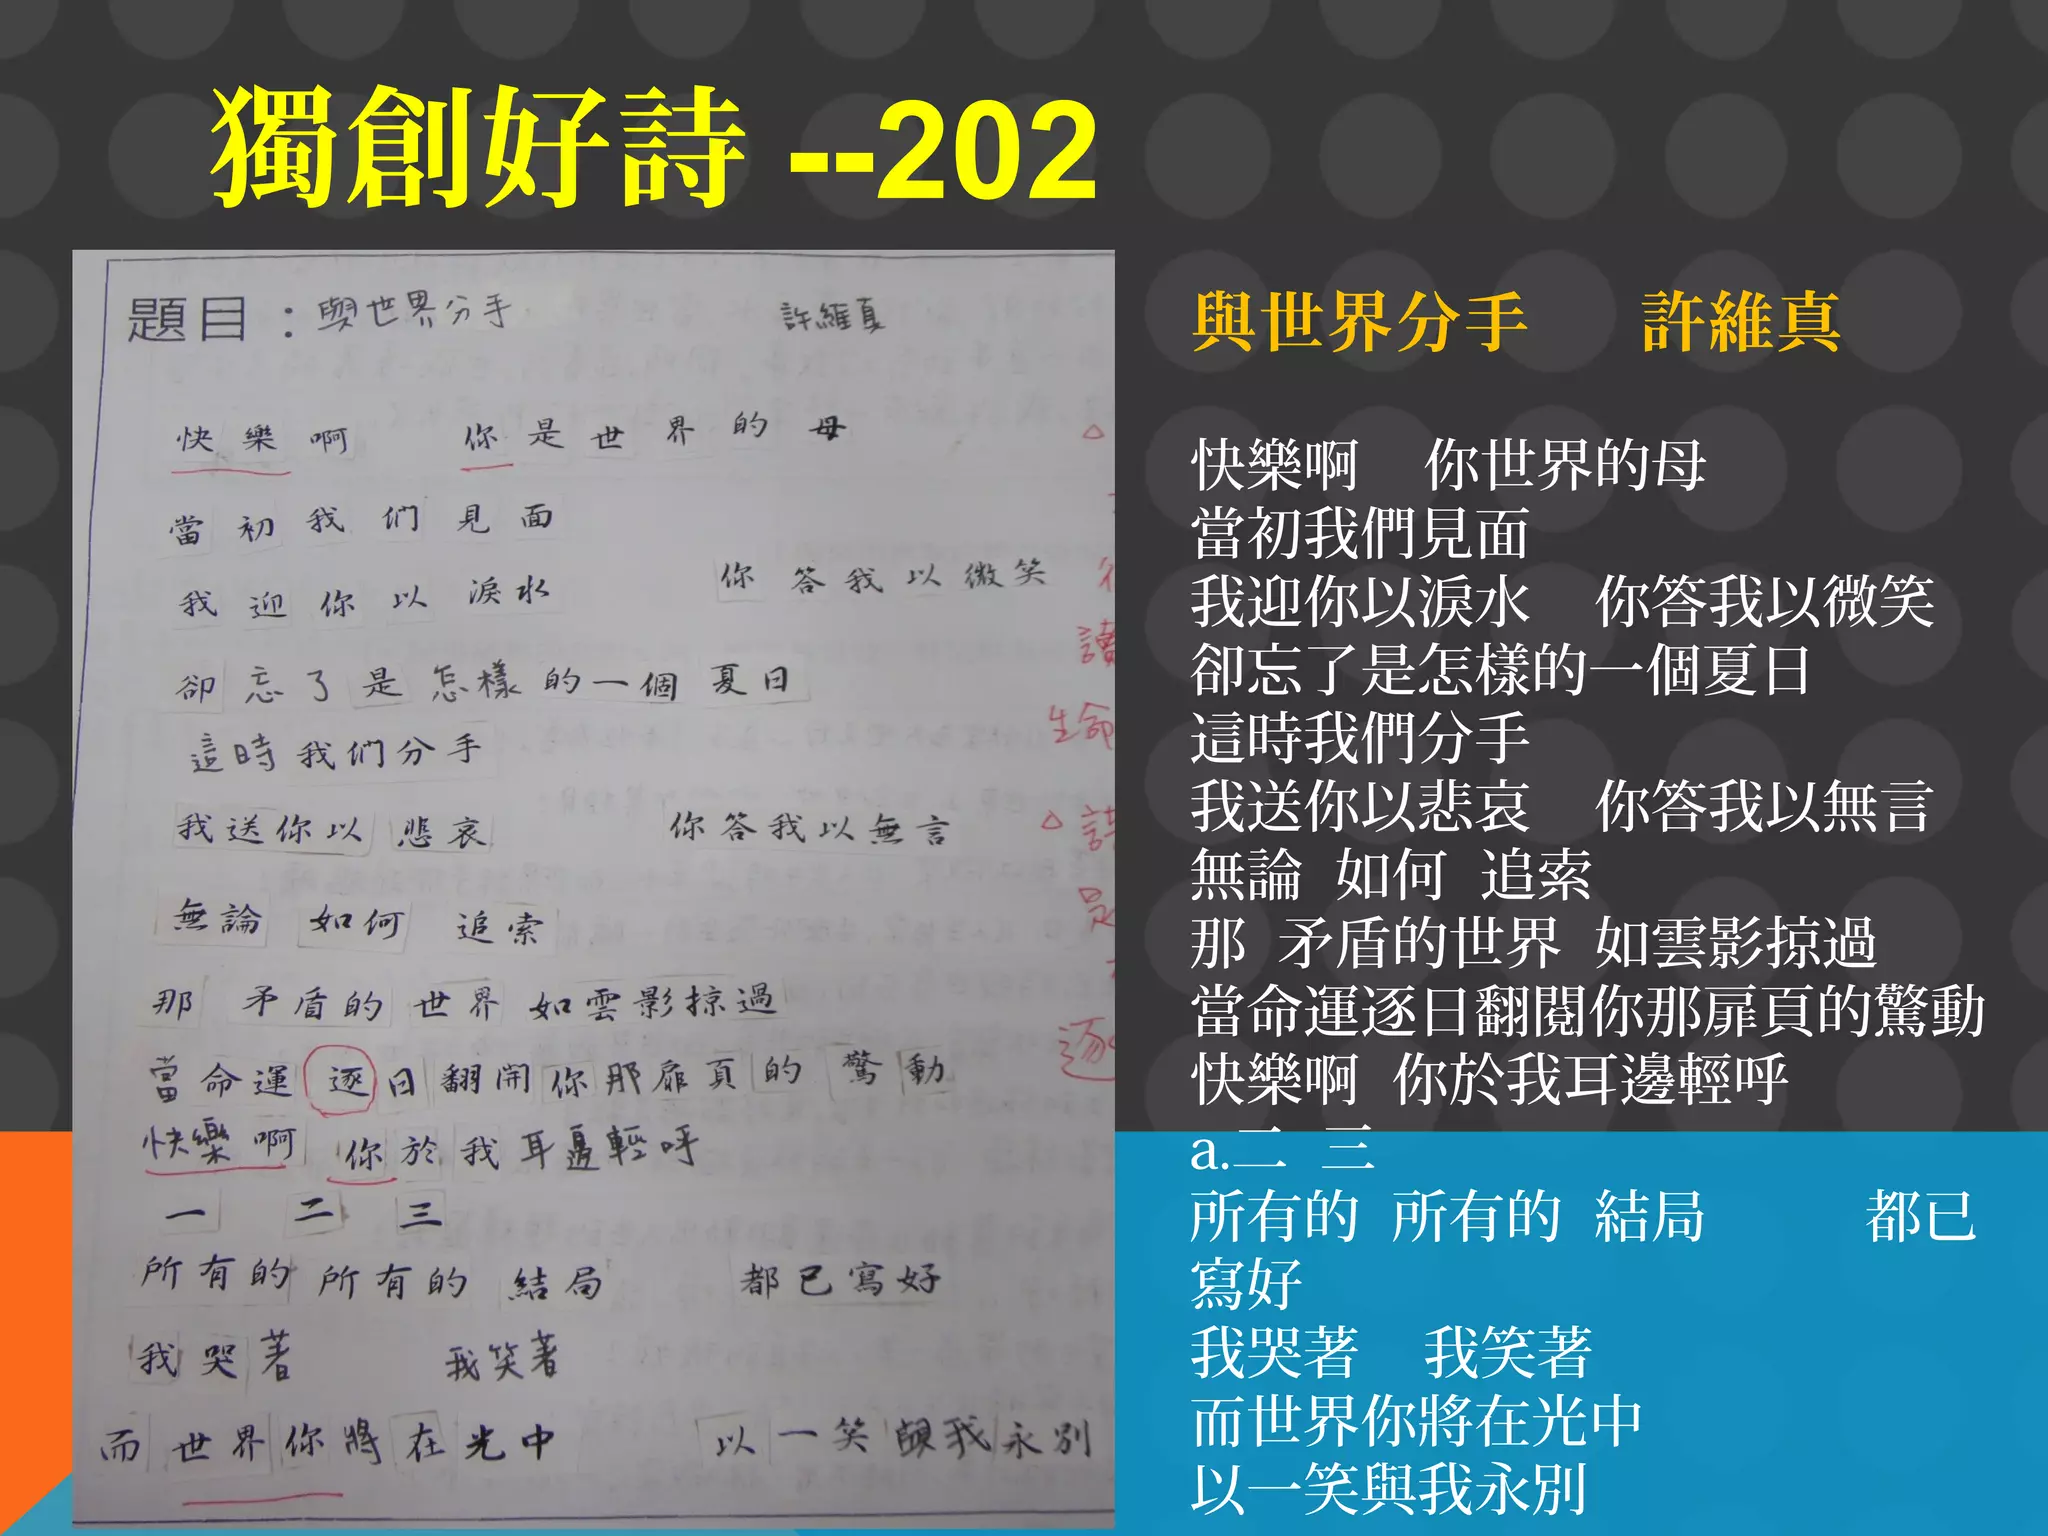 獨創好詩 --202
題目：與世界分手 許維真
快樂啊 你是世界的母
當初我们見面
我迎你以淚水 你答我以微笑
卻忘了是怎樣的一個夏日
這時我们分手
我送你以悲哀 你答我以無言
無論 如何 追索
那 矛盾的世界 如雲影掠過
當命運逐日翻開你那扉頁的驚動
快樂啊 你於我耳邊輕呼
一 二 三
所有的 所有的 結局 都已寫好
我哭著 我笑著
而世界你將在光中 以一笑與我永別
讀
生命
是
逐
與世界分手 許維真
快樂啊 你世界的母
當初我們見面
我迎你以淚水 你答我以微笑
卻忘了是怎樣的一個夏日
這時我們分手
我送你以悲哀 你答我以無言
無論 如何 追索
那 矛盾的世界 如雲影掠過
當命運逐日翻閱你那扉頁的驚動
快樂啊 你於我耳邊輕呼
a.二 三
所有的 所有的 結局 都已
寫好
我哭著 我笑著
而世界你將在光中
以一笑與我永別